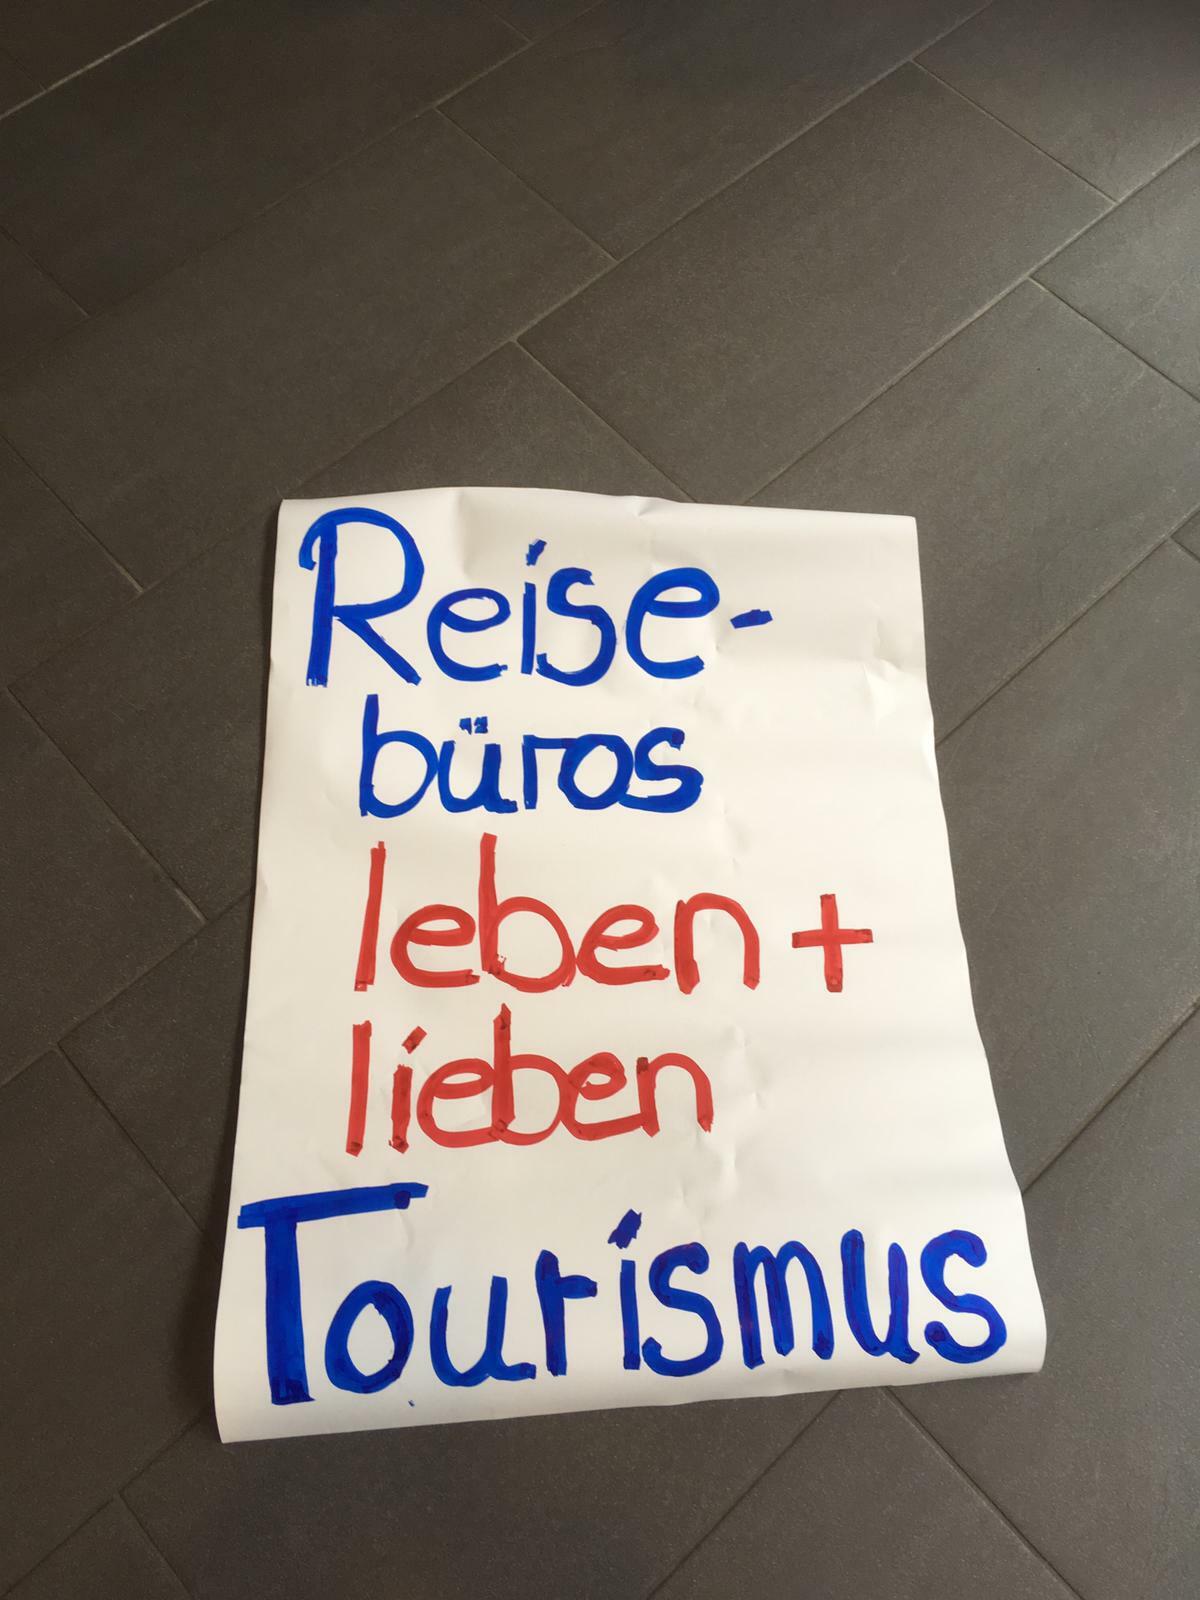 Reise-
büros
leben +
lieben
Tourismus